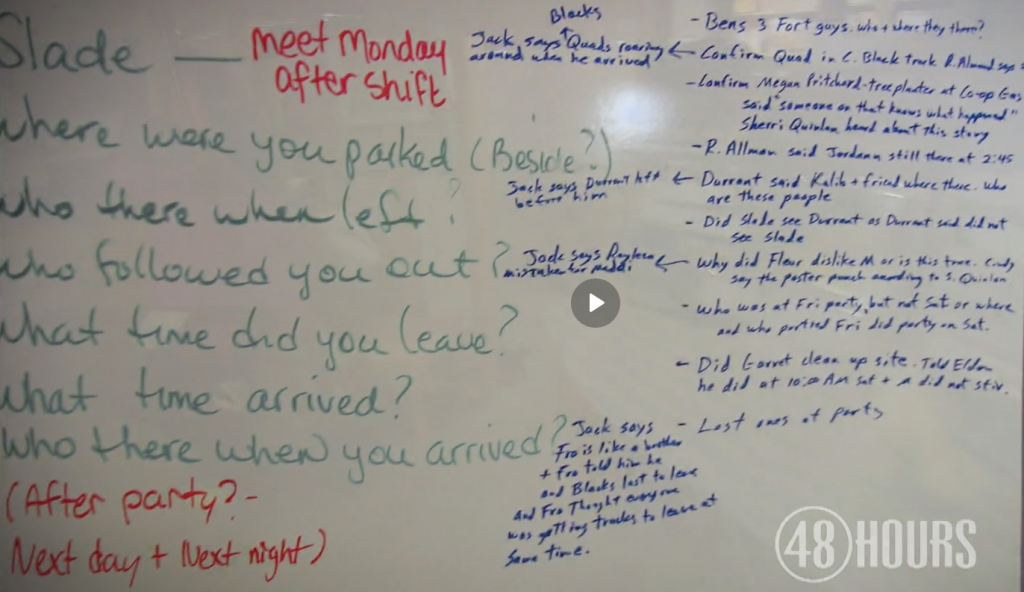 Slade — meet Monday
after shift
where were you parked (Beside?)
who there when left?
who followed you out?
what time did you leave?
what time arrived?
who there when you arrived?
(After party? -
Next day + Next night)
Blacks
Jack says Quads roaring
around when he arrived
Jack says Durrant left
before him
Jack says
mistaken for
Jack says
Fro is like a brother
+ Fro told him he
and Blacks last to leave
And Fro Thought everyone
was getting trucks to leave at
same time.
- Bens 3 Fort guys. who + where they there?
← Confirm Quad in C. Black truck R. Allman says
- Confirm Megan Pritchard - treeplanter at Co-op Gas
said "someone on that knows what happened"
Sherri Quinlan heard about this story
- R. Allman said Jordann still there at 2:45
← Durrant said Kalib + friend where there. who
are these people
- Did Slade see Durrant as Durrant said did not
see Slade
← why did Fleur dislike M or is this true. Cindy
say the poster punch according to S. Quinlan
- who was at Fri party, but not Sat or where
and who partied Fri did party on Sat.
- Did Garret clean up site. Told Eldon
he did at 10:00 AM Sat + did not stir.
- Last ones at party
48 HOURS